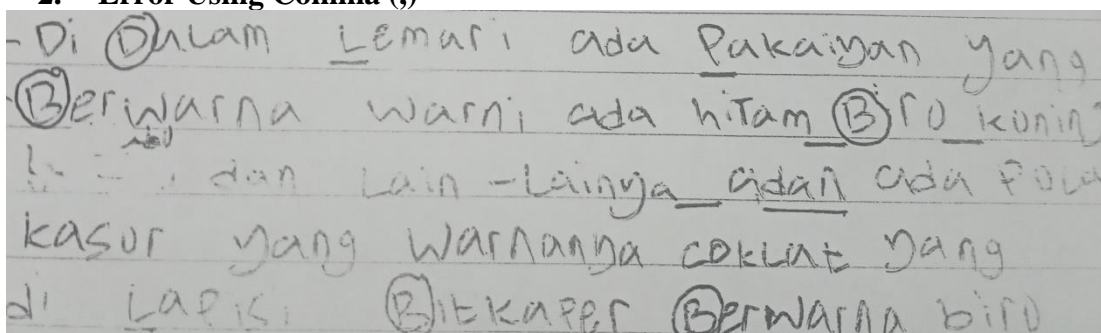 2. Error Using Comma (,)
- Di Dalam Lemari ada Pakaiyan yang
Berwarna warni ada hiTam Biro kuning
dan Lain - Lainya adan ada Pola
kasur yang warnanya coklat yang
di Lapisi Bitkaper Berwarna biro